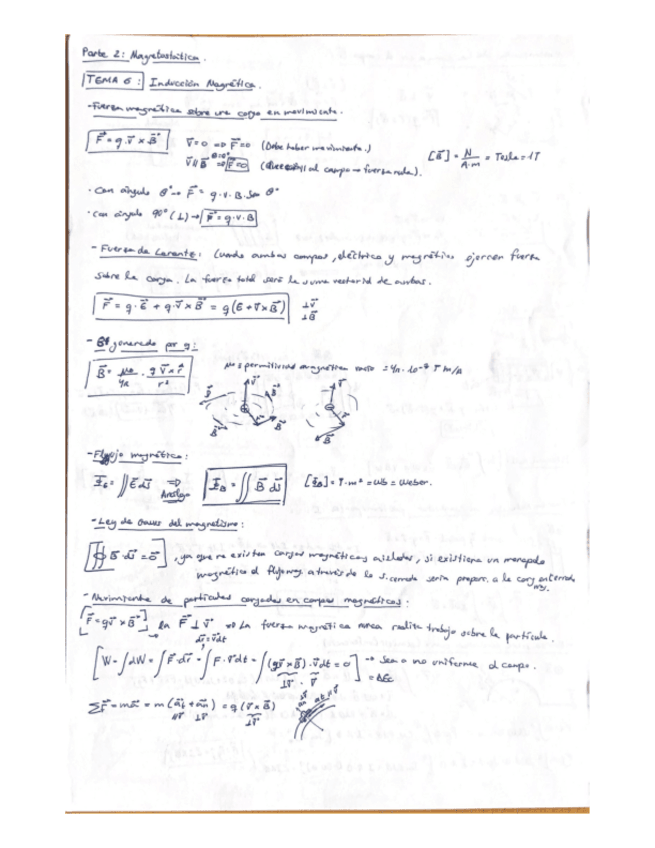 Parte 2: Magnetostática.
TEMA 6: Inducción Magnética.
-Fuerza magnética sobre una carga en movimiento.
F⃗ = q·v⃗ × B⃗ v⃗=0 ⇒ F⃗=0 (Debe haber movimiento.) [B⃗] = N/A·m = Tesla = 1T
v⃗ ∥ B⃗ θ=0° ⇒ F=0 al campo → fuerza nula).
· Con ángulo θ° → F⃗ = q·v·B·Sen θ°
· Con ángulo 90° (⊥) → F⃗ = q·v·B
- Fuerza de Lorentz: Cuando ambos campos, eléctrico y magnético ejercen fuerza
sobre la carga. La fuerza total será la suma vectorial de ambas.
F⃗ = q·E⃗ + q·v⃗×B⃗ = q(E⃗+v⃗×B⃗) ⊥v⃗
⊥B⃗
- B⃗ generado por q:
B⃗ = μ₀/4π · q v⃗×r̂/r² μ₀ permitividad magnética vacío = 4π·10⁻⁷ T m/A
v⃗ B⃗ B⃗ B⃗ B⃗ v⃗ B⃗
- Flujo magnético:
Φ_E = ∬ E⃗ ds⃗ ⇒ Análogo Φ_B = ∬ B⃗ ds⃗ [Φ_B] = T·m² = Wb = Weber.
- Ley de Gauss del magnetismo:
∯ B⃗·ds⃗ = 0⃗ , ya que no existen cargas magnéticas aisladas, si existiera un monopolo
magnético el flujo mag. a través de la s. cerrada sería propor. a la carg. encerrada
mag.
- Movimiento de partículas cargadas en campos magnéticos:
[F⃗=q v⃗×B⃗] → En F⃗ ⊥ v⃗ ⇒ La fuerza magnética nunca realiza trabajo sobre la partícula.
dr⃗=v⃗dt
[W=∫dW=∫F⃗·dr⃗=∫F·v⃗dt=∫(q v⃗×B⃗)·v⃗dt=0] → Sea o no uniforme el campo.
⊥v⃗ · v⃗ = ΔEc
ΣF⃗=ma⃗=m(a⃗t+a⃗n)=q(v⃗×B⃗)
∥v⃗ ⊥v⃗ ⊥v⃗